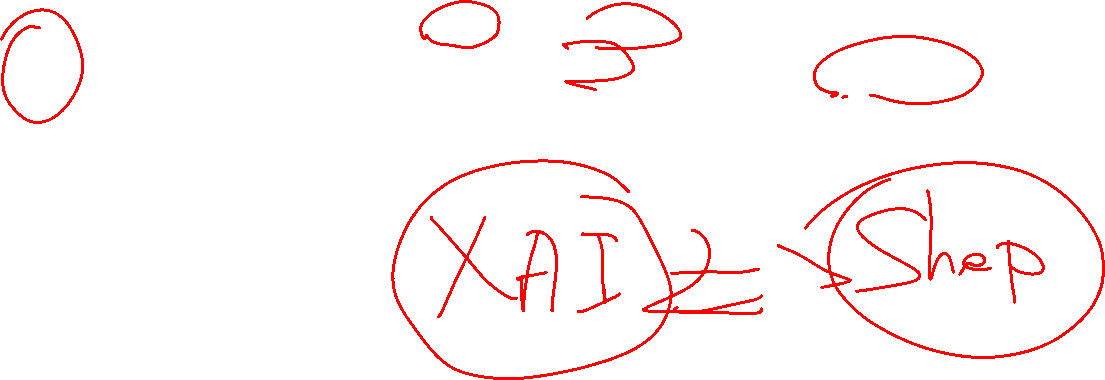 XAI Shep